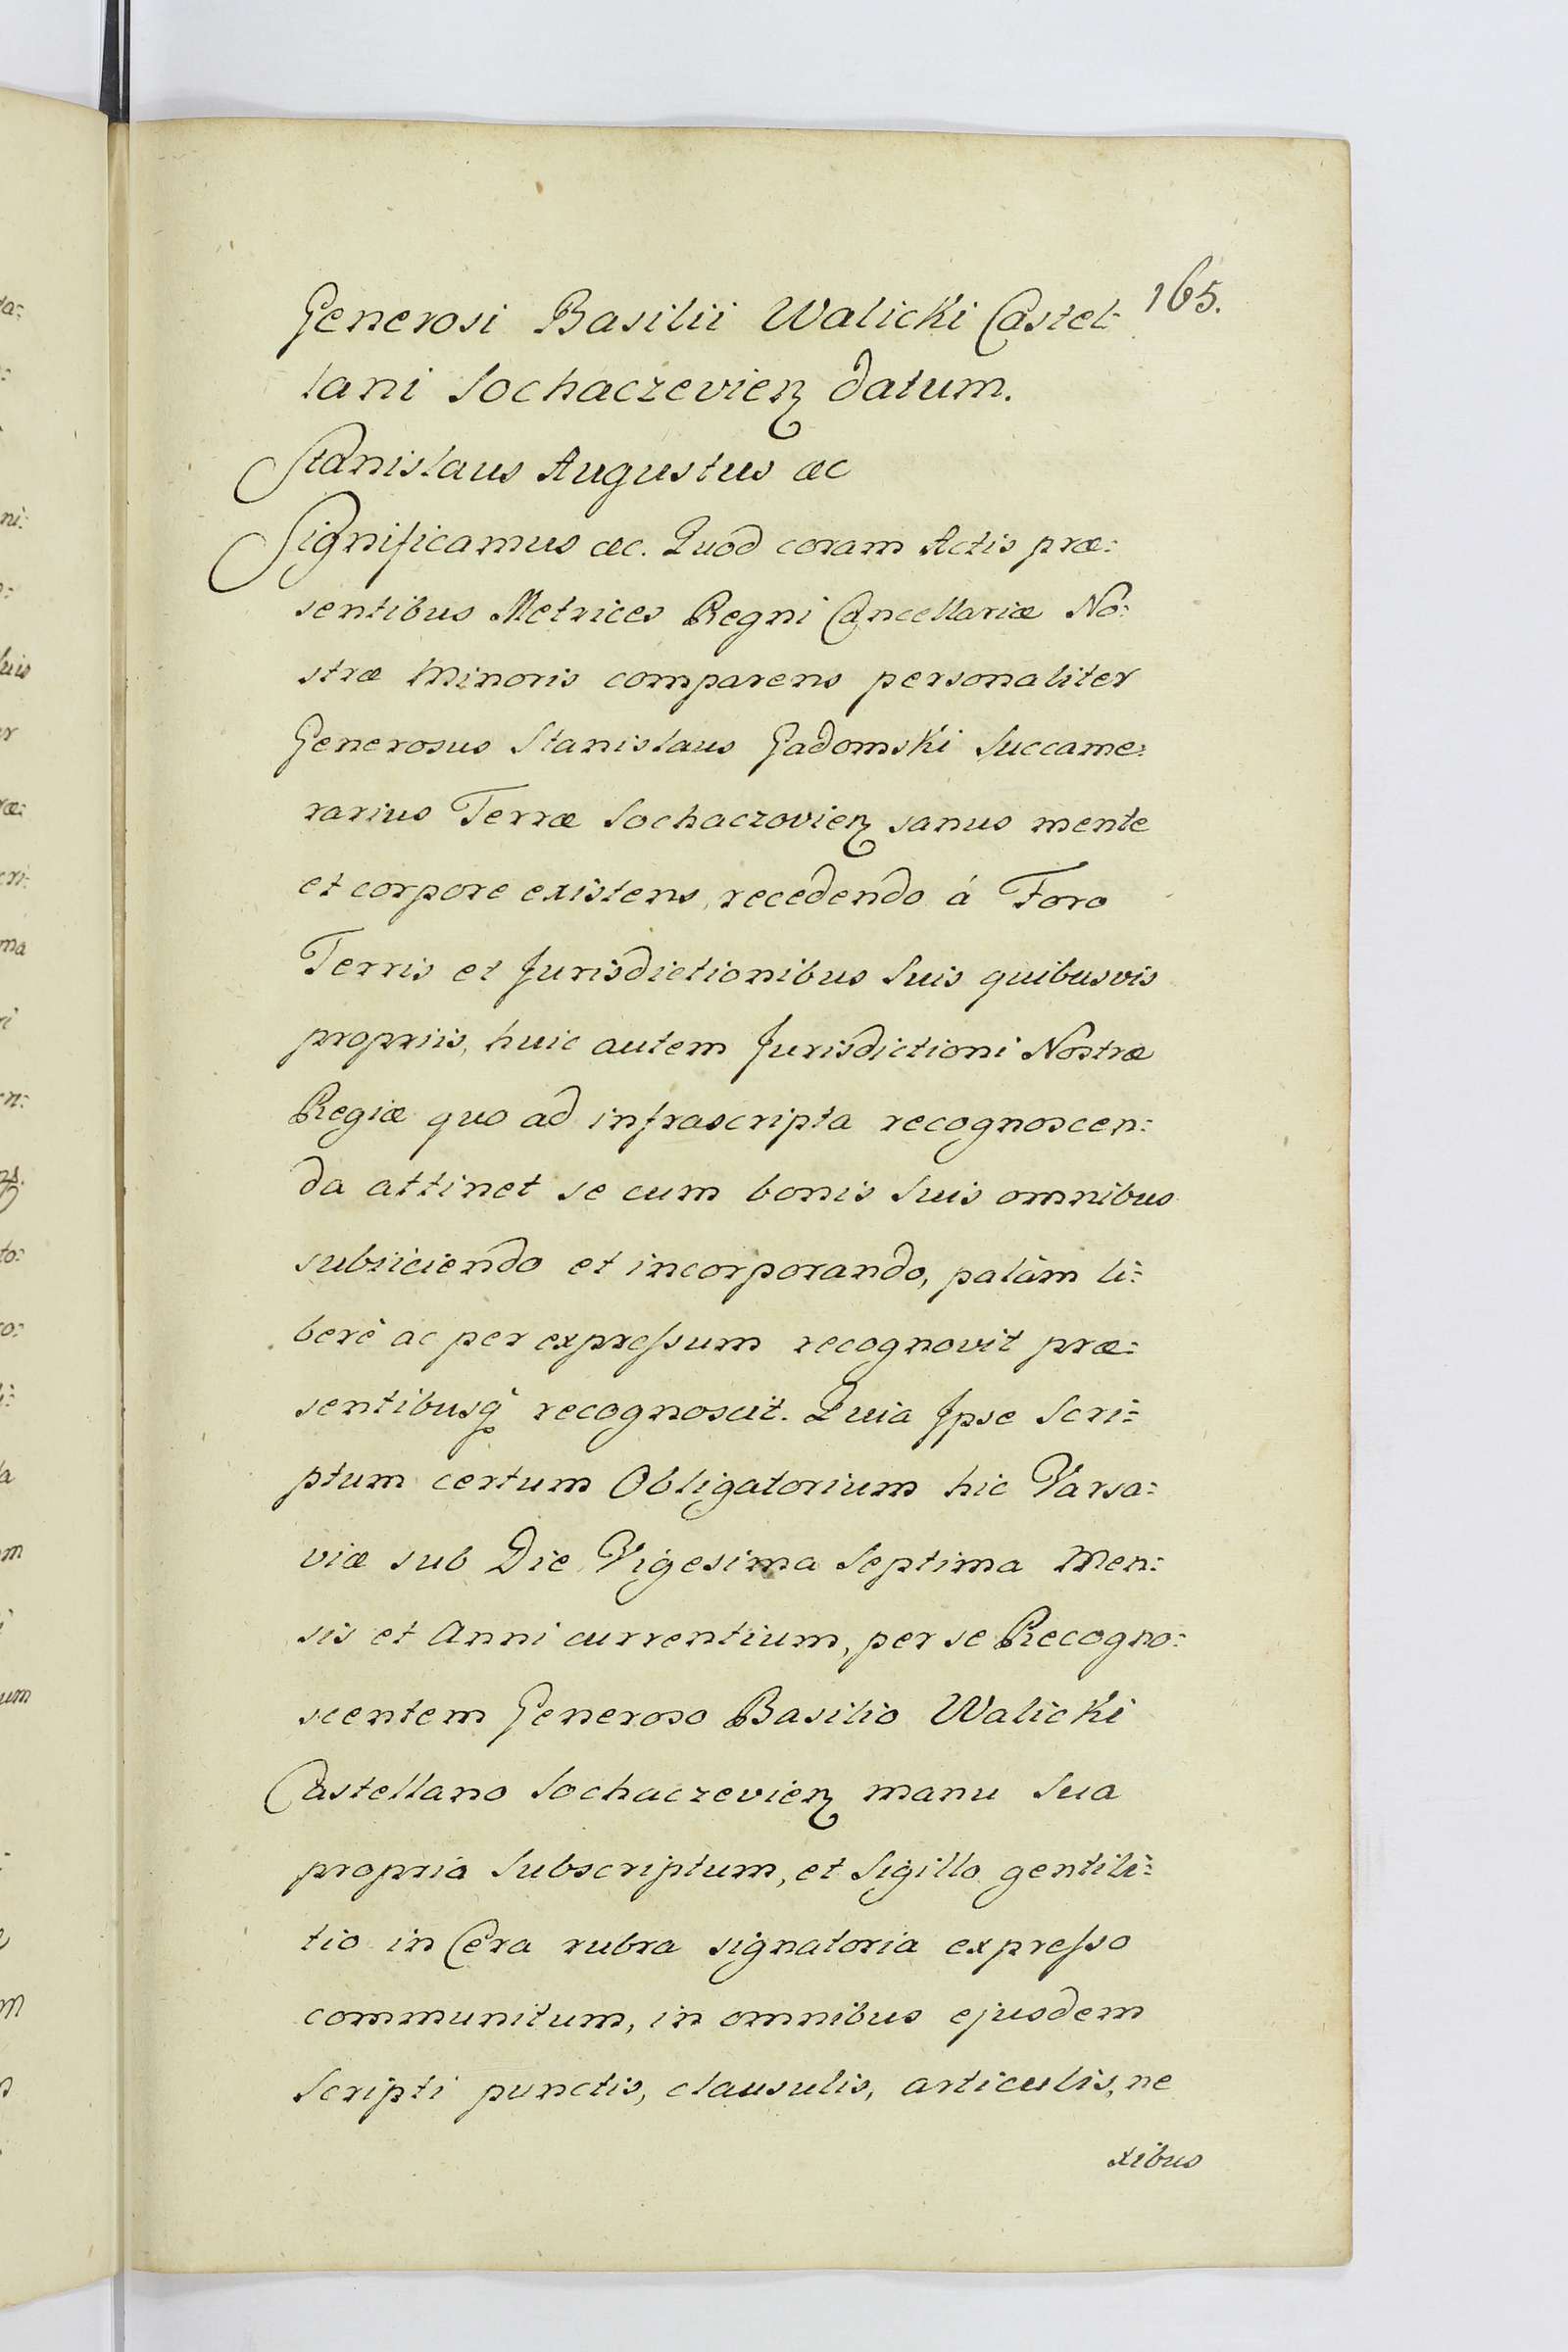 165.
Generosi Basilii Walicki Castel-
lani Sochaczevien datum.
Stanislaus Augustus &c
Significamus &c. Quod coram Actis præ:
sentibus Metrices Regni Cancellariæ No:
stræ Minoris comparens personaliter
Generosus Stanislaus Gadomski Succame:
rarius Terræ Sochaczovien sanus mente
et corpore existens, recedendo á Foro
Terris et Jurisdictionibus Suis quibusvis
propriis, huic autem Jurisdictioni Nostræ
Regiæ quo ad infrascripta recognoscen:
da attinet se cum bonis Suis omnibus
subiiciendo et incorporando, palàm li:
berè ac per expressum recognovit præ:
sentibusq recognoscit. Quia Ipse Scri:
ptum certum Obligatorium hic Varsa:
viæ sub Die Vigesima Septima Men:
sis et Anni currentium, per se Recogno:
scentem Generoso Basilio Walicki
Castellano Sochaczevien manu Sua
propria Subscriptum, et Sigillo gentili:
tio in Cera rubra signatoria expresso
communitum, in omnibus ejusdem
Scripti punctis, clausulis, articulis, ne
xibus